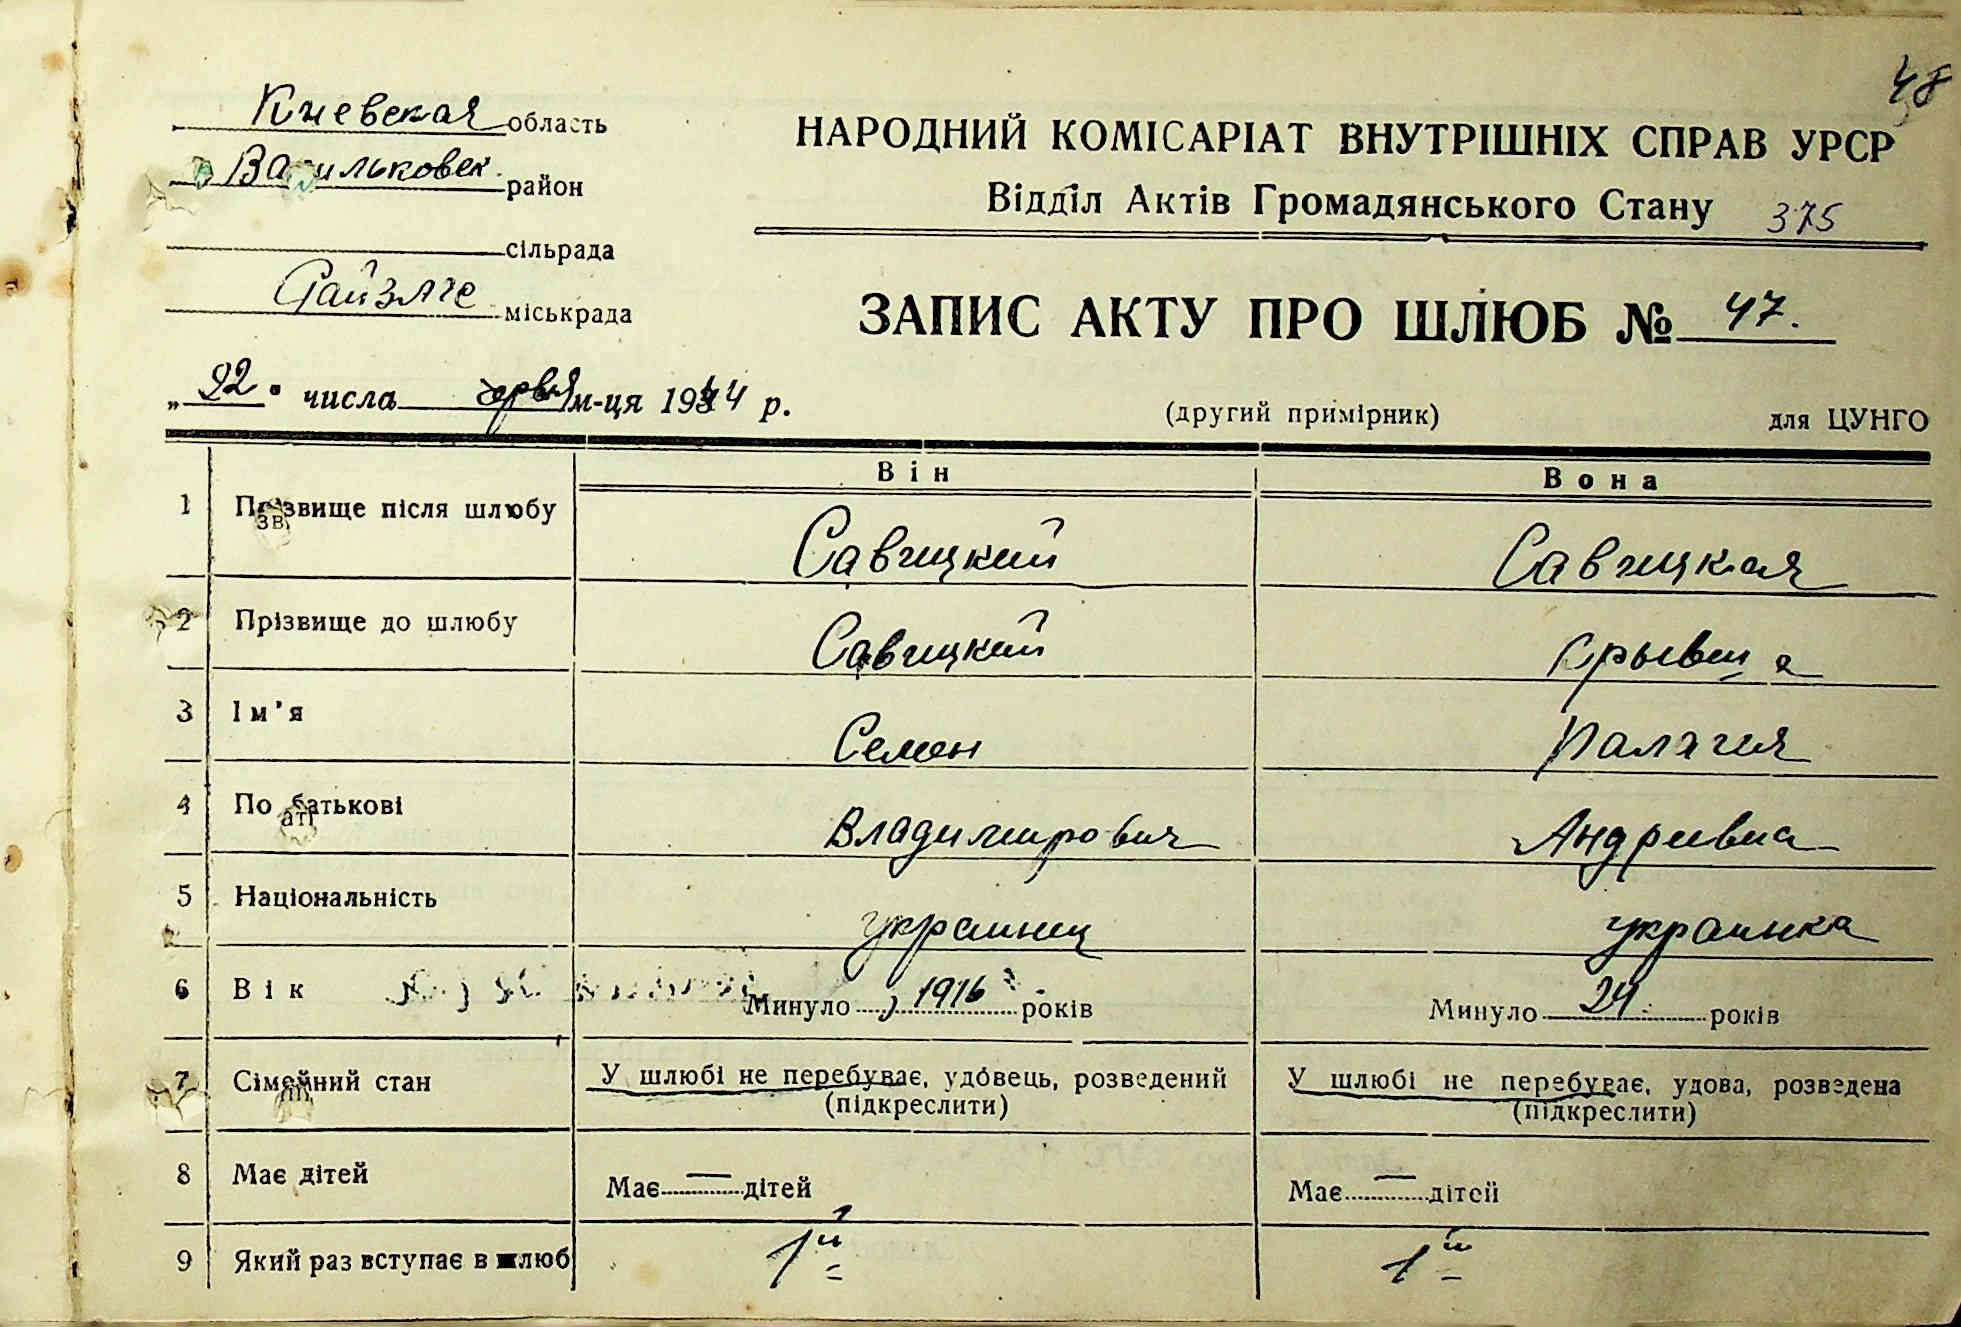 48
Киевская область
Васильковск. район
сільрада
Райзагс міськрада
НАРОДНИЙ КОМІСАРІАТ ВНУТРІШНІХ СПРАВ УРСР
Відділ Актів Громадянського Стану 375
ЗАПИС АКТУ ПРО ШЛЮБ № 47.
„22" числа м-ця 1944 р.
(другий примірник) для ЦУНГО
Він Вона
1 Прізвище після шлюбу Савицкий Савицкая
2 Прізвище до шлюбу Савицкий
3 Ім'я Семен Палагия
4 По батькові Владимирович Андреевна
5 Національність украинец украинка
6 Вік Минуло 1916 років Минуло 24 років
7 Сімейний стан У шлюбі не перебуває, удовець, розведений У шлюбі не перебуває, удова, розведена
(підкреслити) (підкреслити)
8 Має дітей Має — дітей Має — дітей
9 Який раз вступає в шлюб 1й 1й